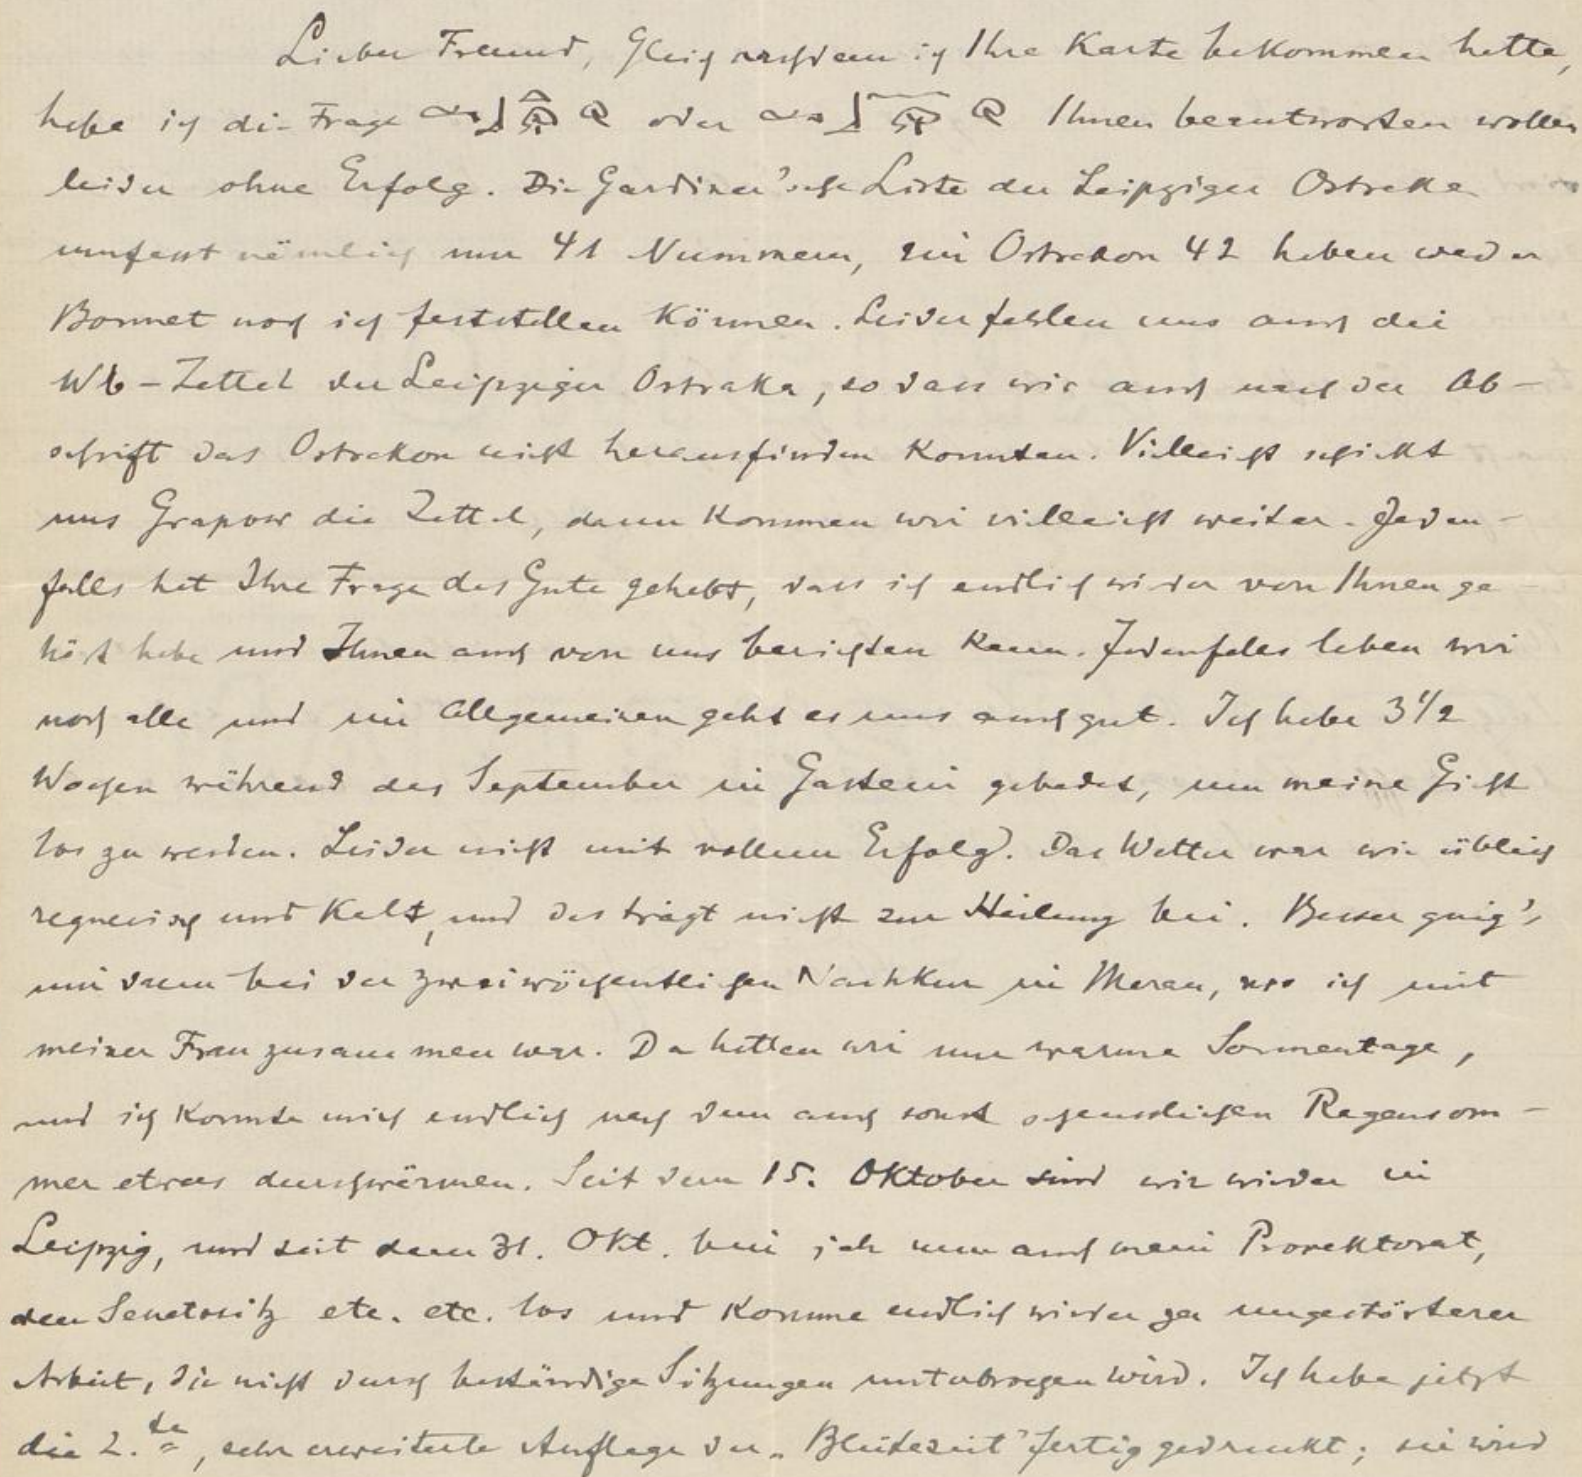 Lieber Freund, Gleich nachdem ich Ihre Karte bekommen hatte,
habe ich die Frage oder Ihnen beantworten wollen
leider ohne Erfolg. Die Gardiner'sche Liste der Leipziger Ostraka
umfasst nämlich nur 41 Nummern, ein Ostrakon 42 haben weder
Bonnet noch ich feststellen können. Leider fehlen uns auch die
Wb-Zettel der Leipziger Ostraka, so dass wir auch nach der Ab-
schrift das Ostrakon nicht herausfinden konnten. Vielleicht schickt
uns Grapow die Zettel, dann kommen wir vielleicht weiter. Jeden-
falls hat Ihre Frage das Gute gehabt, dass ich endlich wieder von Ihnen ge
hört habe und Ihnen auch von uns berichten kann. Jedenfalls leben wir
noch alle und im Allgemeinen geht es uns auch gut. Ich habe 3 1/2
Wochen während des September in Gastein gebadet, um meine Gicht
los zu werden. Leider nicht mit vollem Erfolg. Das Wetter war wie üblich
regnerisch und kalt, und das trägt nicht zur Heilung bei. Besser ging's
mir dann bei der zweiwöchentlichen Nachkur in Meran, wo ich mit
meiner Frau zusammen war. Da hatten wir nur warme Sonnentage,
und ich konnte mich endlich nach dem auch sonst scheusslichen Regensom-
mer etwas durchwärmen. Seit dem 15. Oktober sind wir wieder in
Leipzig, und seit dem 31. Okt. bin ich nun auch mein Prorektorat,
den Senatssitz etc. etc. los und komme endlich wieder zu ungestörterer
Arbeit, die nicht durch beständige Sitzungen unterbrochen wird. Ich habe jetzt
die 2.te, sehr erweiterte Auflage der „Blütezeit" fertig gedruckt; sie wird